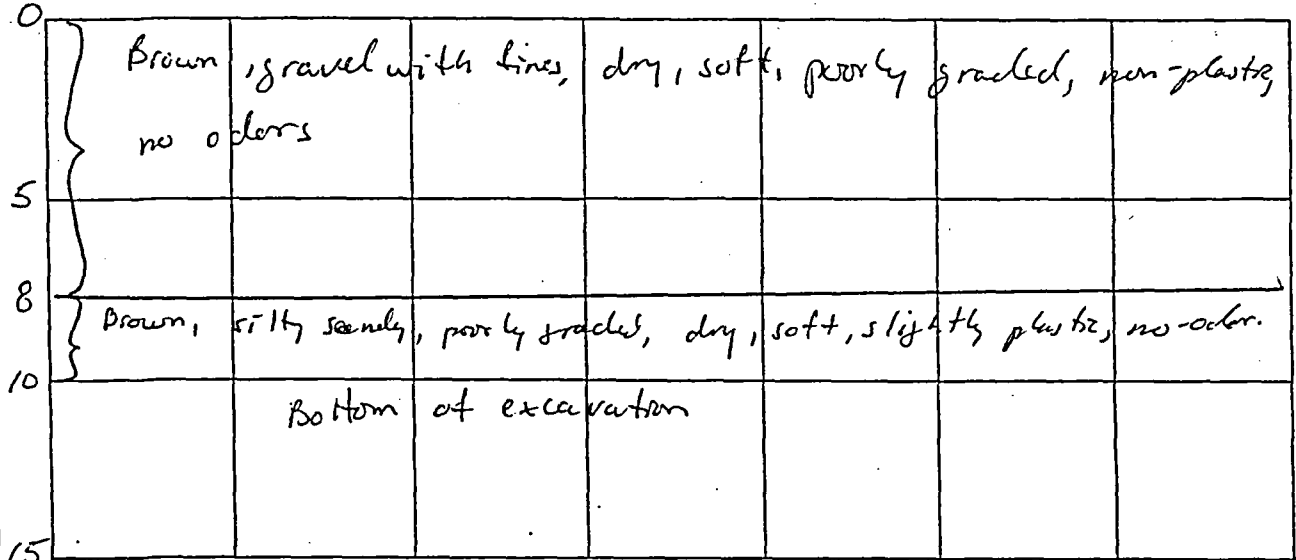 0
Brown, gravel with fines, dry, soft, poorly graded, non-plastic,
no odors
5
8
Brown, silty sandy, poorly graded, dry, soft, slightly plastic, no-odor.
10
Bottom of excavation
15